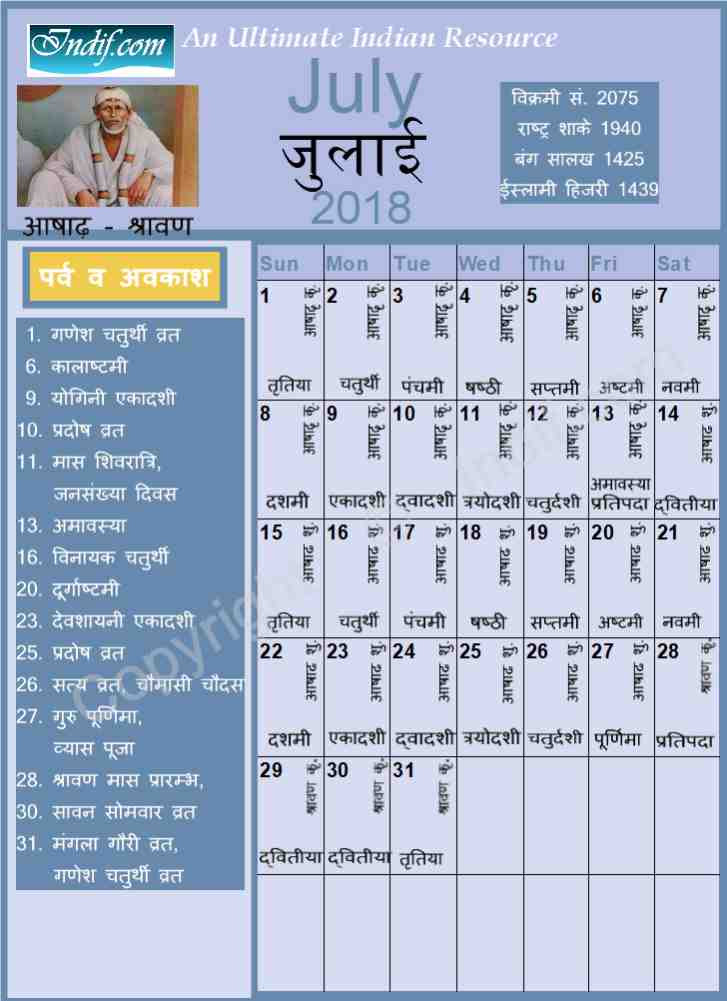 Indif.com An Ultimate Indian Resource
July
जुलाई
2018
विक्रमी सं. 2075
राष्ट्र शाके 1940
बंग सालख 1425
ईस्लामी हिजरी 1439
आषाढ़ - श्रावण
पर्व व अवकाश
1. गणेश चतुर्थी व्रत
6. कालाष्टमी
9. योगिनी एकादशी
10. प्रदोष व्रत
11. मास शिवरात्रि,
जनसंख्या दिवस
13. अमावस्या
16. विनायक चतुर्थी
20. दूर्गाष्टमी
23. देवशायनी एकादशी
25. प्रदोष व्रत
26. सत्य व्रत, चौमासी चौदस
27. गुरु पूर्णिमा,
व्यास पूजा
28. श्रावण मास प्रारम्भ,
30. सावन सोमवार व्रत
31. मंगला गौरी व्रत,
गणेश चतुर्थी व्रत
Sun Mon Tue Wed Thu Fri Sat
1 आषाढ़ कृ. 2 आषाढ़ कृ. 3 आषाढ़ कृ. 4 आषाढ़ कृ. 5 आषाढ़ कृ. 6 आषाढ़ कृ. 7 आषाढ़ कृ.
तृतिया चतुर्थी पंचमी षष्ठी सप्तमी अष्टमी नवमी
8 आषाढ़ कृ. 9 आषाढ़ कृ. 10 आषाढ़ कृ. 11 आषाढ़ कृ. 12 आषाढ़ कृ. 13 आषाढ़ कृ. 14 आषाढ शु.
अमावस्या
दशमी एकादशी द्वादशी त्रयोदशी चतुर्दशी प्रतिपदा द्वितीया
15 आषाढ शु. 16 आषाढ शु. 17 आषाढ शु. 18 आषाढ शु. 19 आषाढ शु. 20 आषाढ शु. 21 आषाढ शु.
तृतिया चतुर्थी पंचमी षष्ठी सप्तमी अष्टमी नवमी
22 आषाढ शु. 23 आषाढ शु. 24 आषाढ शु. 25 आषाढ शु. 26 आषाढ शु. 27 आषाढ शु. 28 श्रावण कृ.
दशमी एकादशी द्वादशी त्रयोदशी चतुर्दशी पूर्णिमा प्रतिपदा
29 श्रावण कृ. 30 श्रावण कृ. 31 श्रावण कृ.
द्वितीया द्वितीया तृतिया